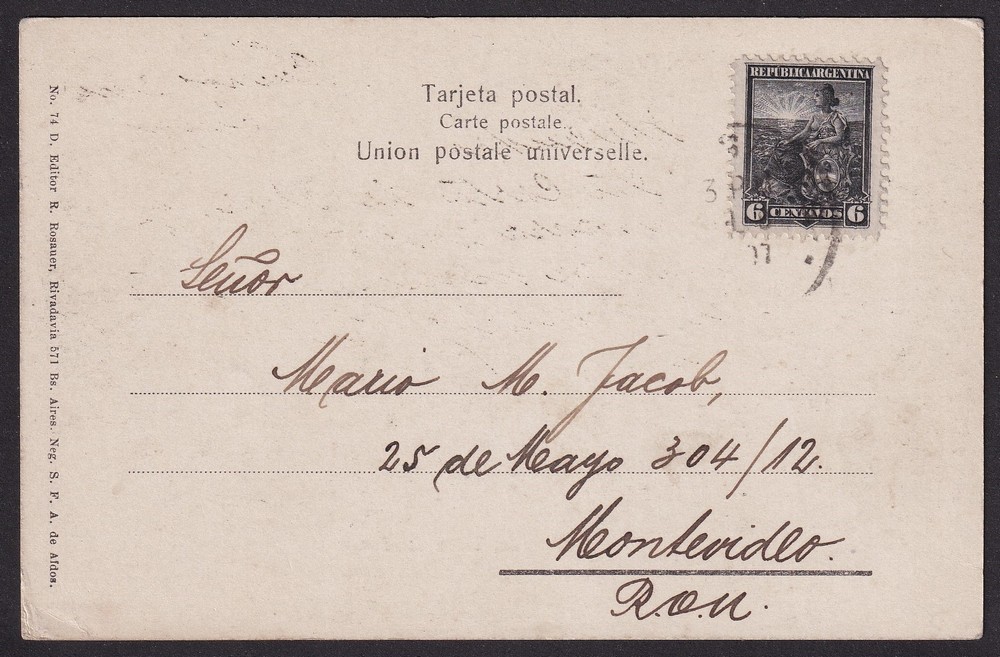 Tarjeta postal.
Carte postale.
Union postale universelle.
REPÚBLICA ARGENTINA
6 CENTAVOS 6
3 P
Señor
Mario M. Jacob,
25 de Mayo 304/12.
Montevideo.
R.O.U.
No. 74 D. Editor R. Rosauer, Rivadavia 571 Bs. Aires. Neg. S. F. A. de Afdos.